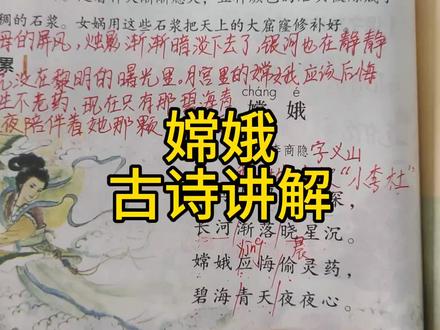 稠的石浆。女娲用这些石浆把天上的大窟窿修补好
母的屏风,烛影渐渐暗淡下去了,银河也在静静
没在黎明的曙光里。月宫里的嫦娥应该后悔
不老药、现在只有那碧海青
夜陪伴着她那颗
累
cháng é
嫦 娥
商隐 字义山
“小李杜”
嫦娥
古诗讲解
深,
长河渐落晓星沉。
嫦娥应悔偷灵药,
碧海青天夜夜心。